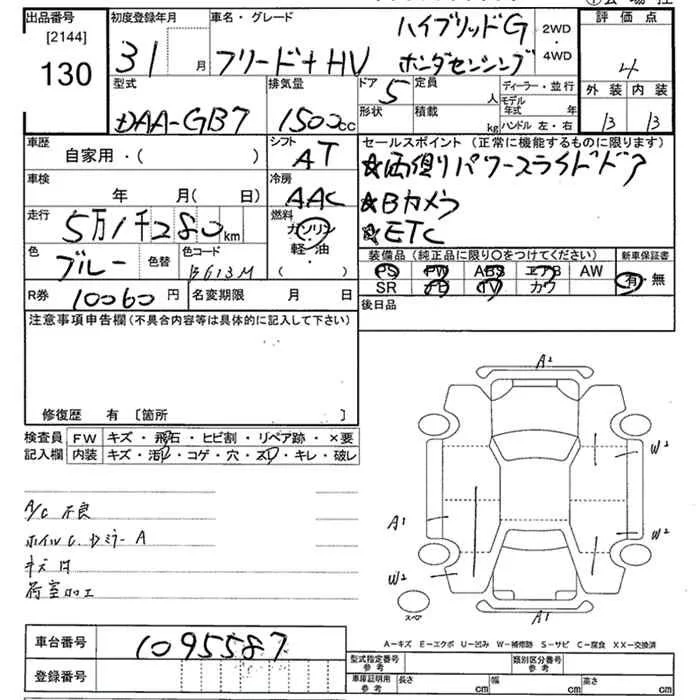 出品番号 初度登録年月 車名・グレード ハイブリッドG 2WD 評価点
[2144] 31 月 フリード+HV ホンダセンシング ・4WD 4
130 型式 排気量 ドア 5 定員 人 ディーラー・並行 外装 内装
DAA-GB7 1500cc 形状 積載 kg モデル年式 年 B B
ハンドル 左・右
車歴 シフト セールスポイント(正常に機能するものに限ります)
自家用・( ) AT ★両側パワースライドドア
車検 冷房 ★Bカメラ
年 月( 日) AAC ★ETC
走行 5万1千280km 燃料 ガソリン 軽・油 ・( )
装備品(純正品に限り○をつけてください) 新車保証書
色 ブルー 色替 色コード B613M PS PW ABS エアB AW 有・無
SR PD TV カワ
R券 10060円 名変期限 月 日 後日品
注意事項申告欄(不具合内容等は具体的に記入して下さい)
修復歴 有 〔箇所 〕
検査員 FW キズ・飛石・ヒビ割・リペア跡・×要
記入欄 内装 キズ・汚レ・コゲ・穴・スレ・キレ・破レ
A/C 不良
ホイルC. Dミラー A
キズ 凹
荷室加工
A2
W2
A1
W2
W2
スペア
A1
A-キズ E-エクボ U-凹み W-補修跡 S-サビ C-腐食 XX-交換済
車台番号 1095587
型式指定番号 参考 類別区分番号 参考
登録番号
車庫証明用 参考 長さ cm 幅 cm 高さ cm